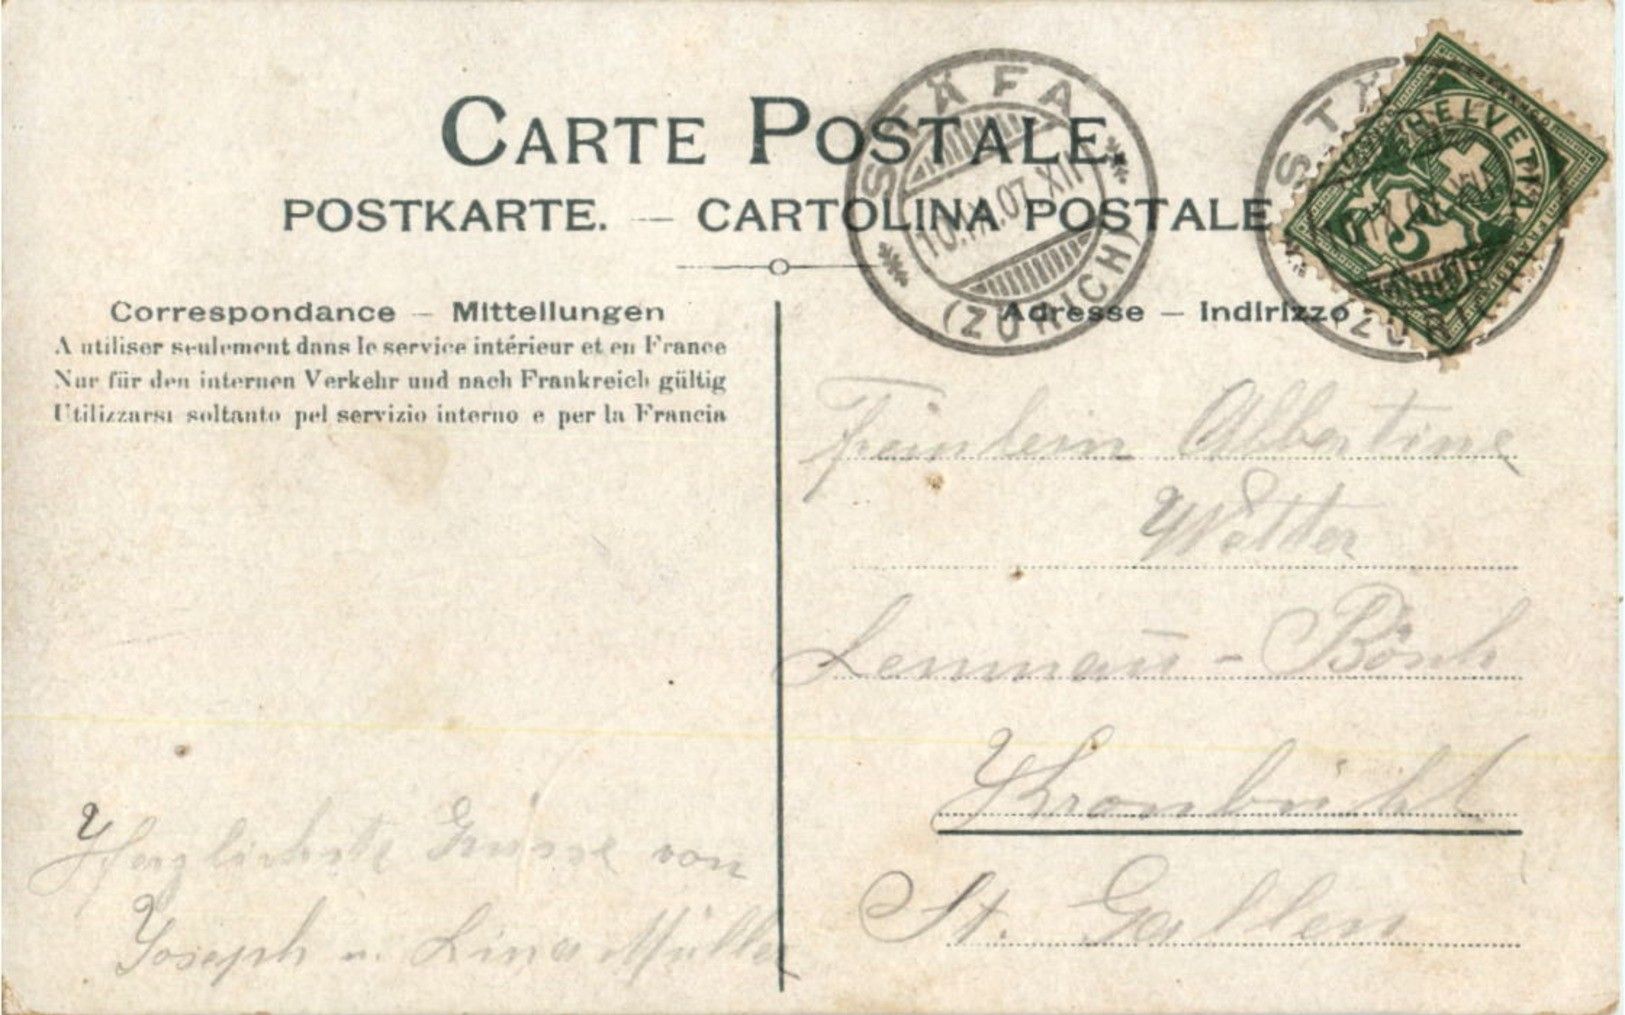 CARTE POSTALE.
POSTKARTE. — CARTOLINA POSTALE
STÄFA
10.IX.07.XII
(ZÜRICH)
STÄ
HELVETIA
FRANCO
5
(ZÜRICH)
Correspondance — Mitteilungen
A utiliser seulement dans le service intérieur et en France
Nur für den internen Verkehr und nach Frankreich gültig
Utilizzarsi soltanto pel servizio interno e per la Francia
Herzlichste Grüsse von
Joseph u. Lina Müller
Adresse — Indirizzo
Fräulein Albertine
Wetter
Kronbühl
St. Gallen